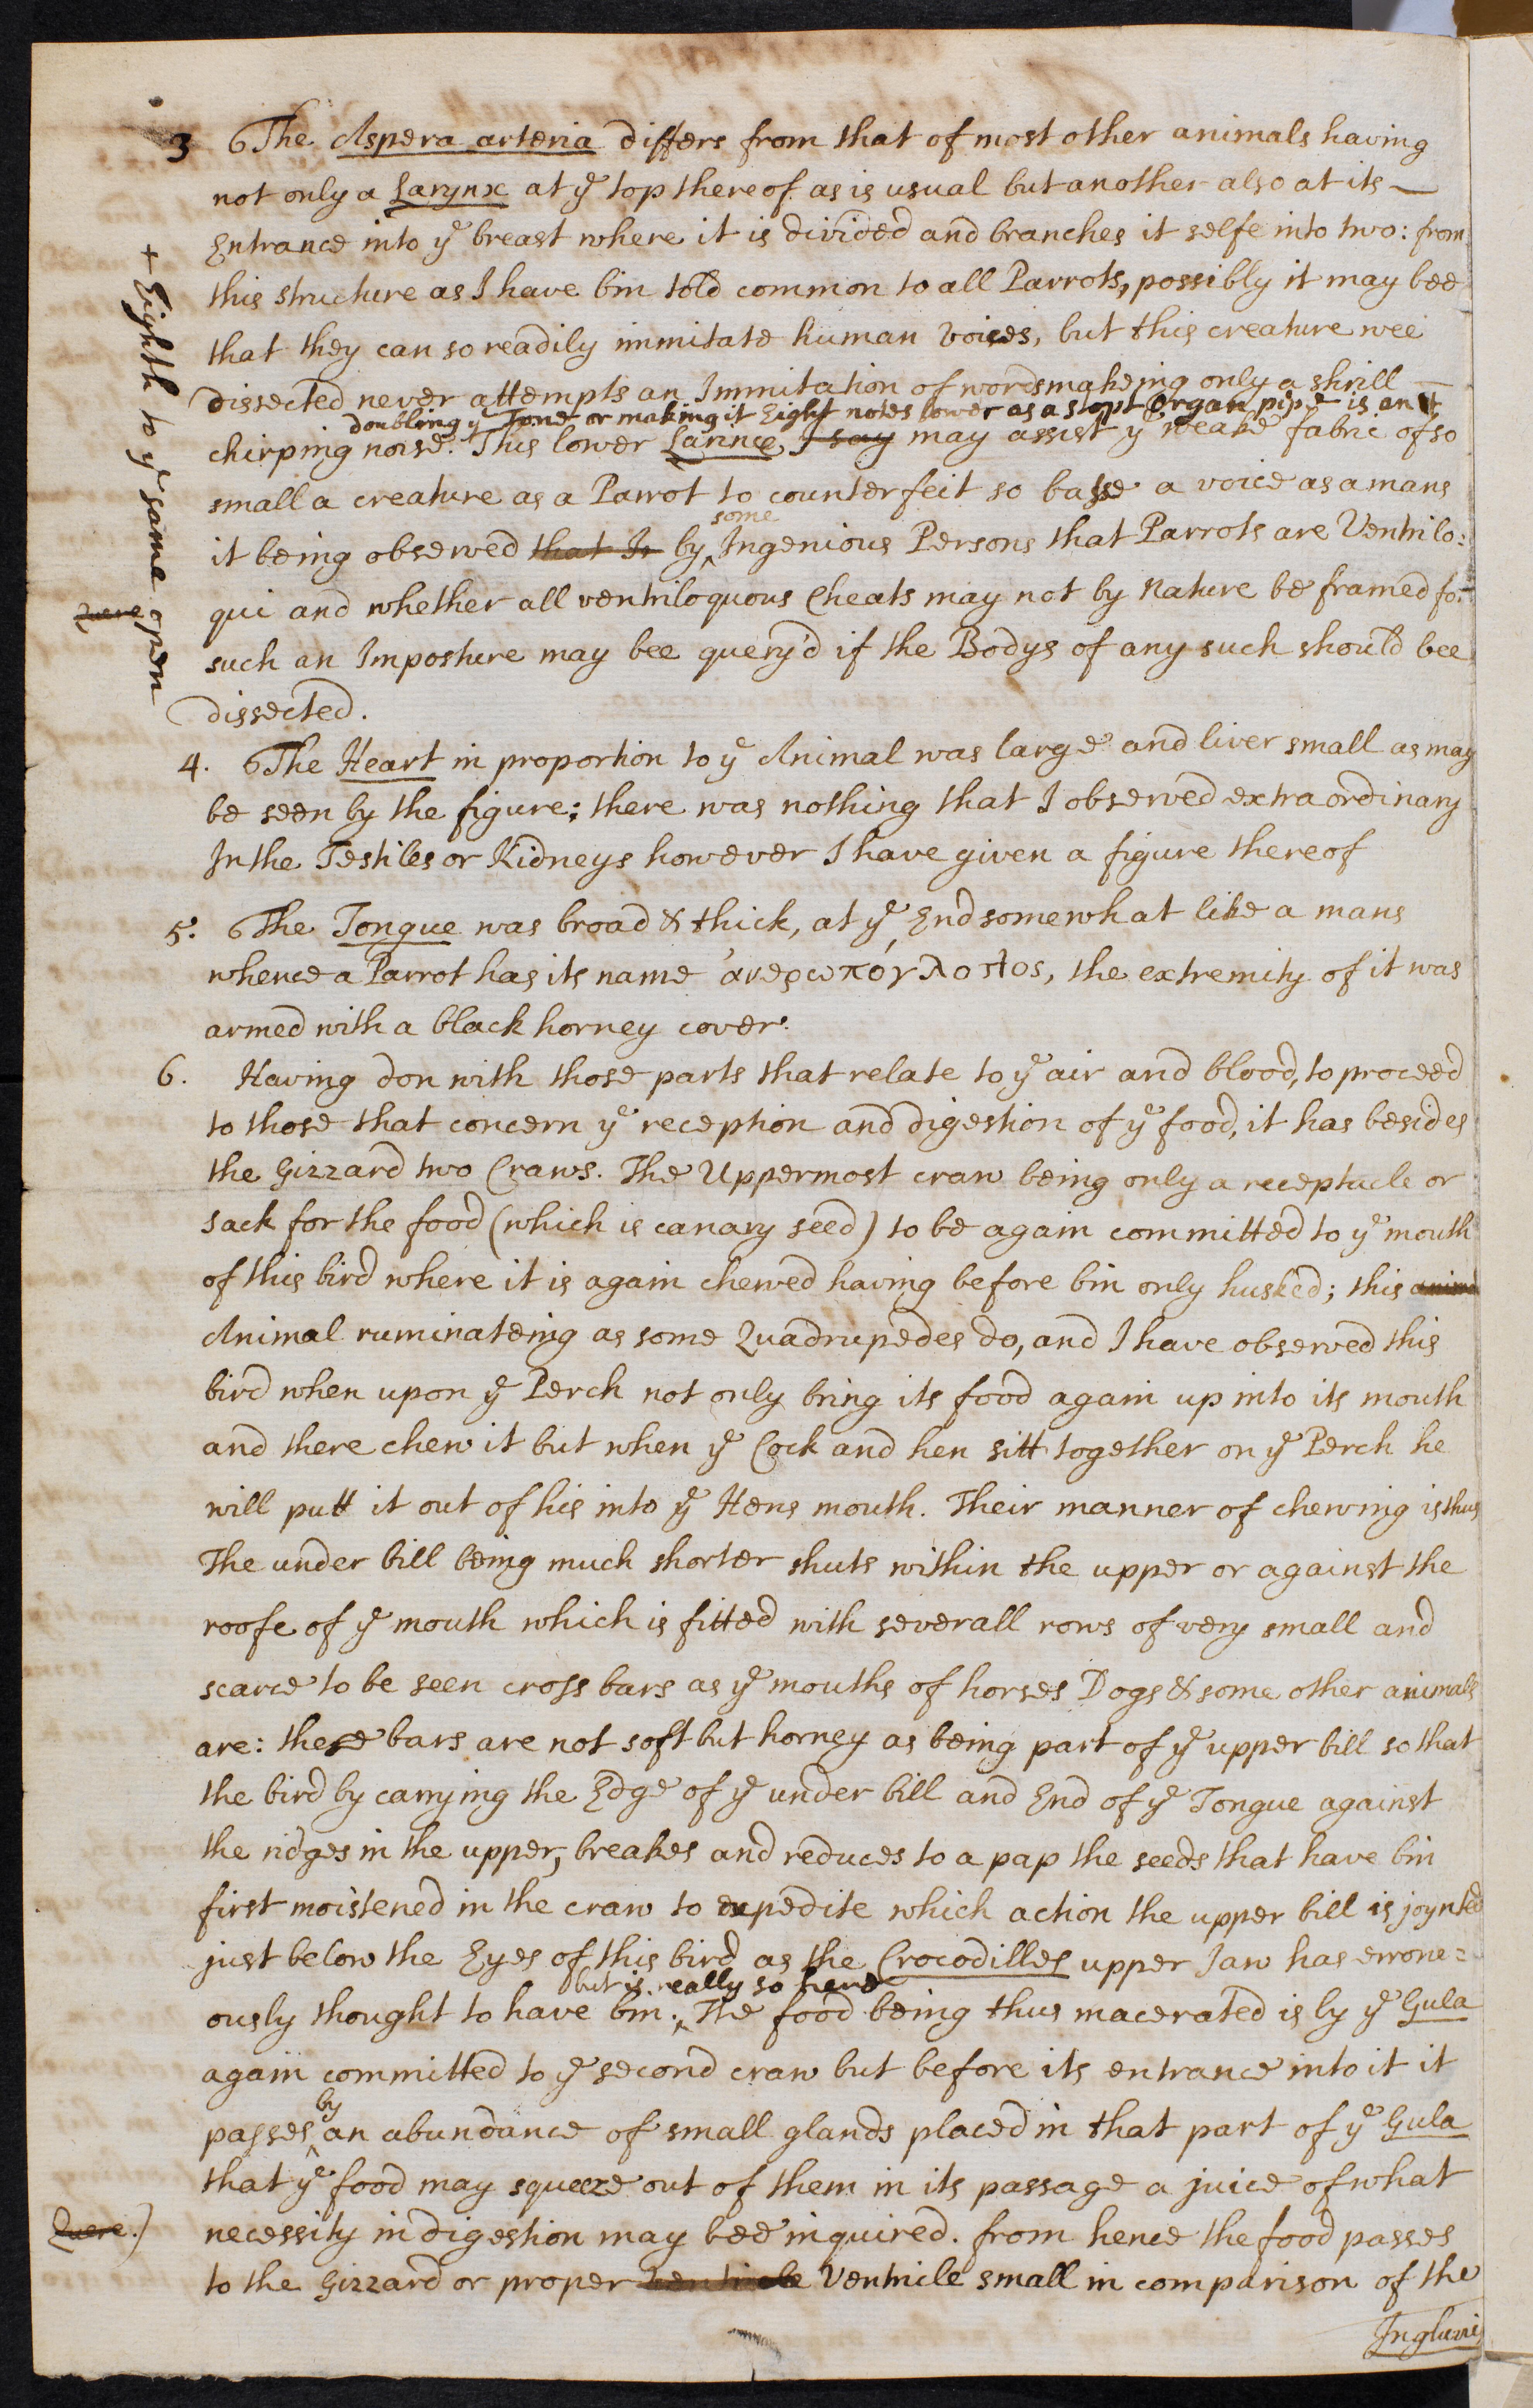 3 The Aspera arteria differs from that of most other animals having
not only a Larynx at yͤ top thereof as is usual but another also at its
Entrance into yͤ breast where it is divided and branches it selfe into two: from
this structure as I have bin told common to all Parrots, possibly it may bee
that they can so readily immitate human voices, but this creature wee
dissected never attempts an Immitation of words makeing only a shrill
doubling yͤ Tone or making it Eight notes lower as a stopt Organ pipe is an +
chirping noise. This lower Larinx, I say may assist yͤ weake fabric of so
small a creature as a Parrot to counterfeit so basse a voice as a mans
some
it being observed that In by ‸ Ingenious Persons that Parrots are Ventrilo:
qui and whether all ventriloquous Cheats may not by Nature be framed for
such an Imposture may bee query'd if the Bodys of any such should bee
dissected.
+ Eighth to yͤ same open
Quere
4. The Heart in proportion to yͤ Animal was large and liver small as may
be seen by the figure; there was nothing that I observed extraordinary
In the Testiles or Kidneys however I have given a figure thereof
5. The Tongue was broad & thick, at yͤ End somewhat like a mans
whence a Parrot has its name the extremity of it was
armed with a black horney cover.
6. Having don with those parts that relate to yͤ air and blood, to proceed
to those that concern yͤ reception and digestion of yͤ food, it has besides
the Gizzard two Craws. The Uppermost craw being only a receptacle or
sack for the food (which is canary seed) to be again committed to yͤ mouth
of this bird where it is again chewed having before bin only husked; this anima
Animal ruminateing as some Quadrupedes do, and I have observed this
bird when upon yͤ Perch not only bring its food again up into its mouth
and there chew it but when yͤ Cock and hen sitt together on yͤ Perch he
will putt it out of his into yͤ Hens mouth. Their manner of chewing is thus
The under bill being much shorter shuts within the upper or against the
roofe of yͤ mouth which is fitted with severall rows of very small and
scarce to be seen cross bars as yͤ mouths of horses Dogs & some other animals
are: these bars are not soft but horney as being part of yͤ upper bill so that
the bird by carrying the Edge of yͤ under bill and End of yͤ Tongue against
the ridges in the upper, breakes and reduces to a pap the seeds that have bin
first moistened in the craw to expedite which action the upper bill is joynted
just below the Eyes of this bird as the Crocodilles upper Jaw has errone=
but is really so here
ously thought to have bin. ‸ The food being thus macerated is by yͤ Gula
again committed to yͤ second craw but before its entrance into it it
by
passes ‸ an abundance of small glands placed in that part of yͤ Gula
that yͤ food may squeeze out of them in its passage a juice of what
Quere.) necessity in digestion may bee inquired. from hence the food passes
to the Gizzard or proper ventricle Ventricle small in comparison of the
Ingluvi